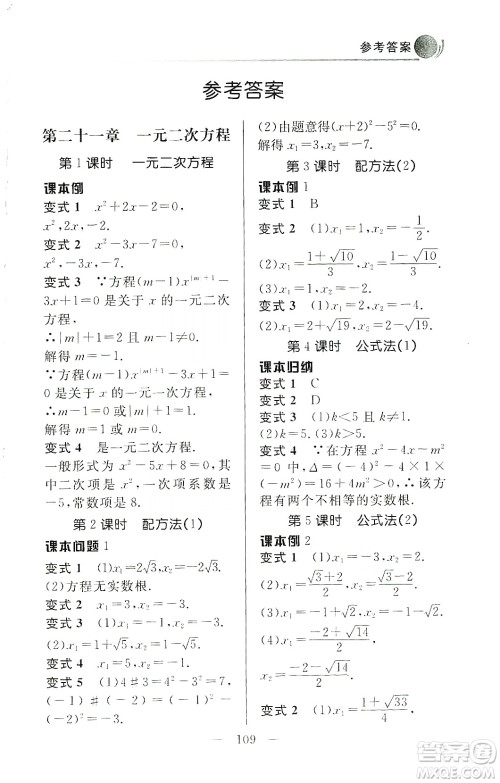 参考答案
参考答案
第二十一章 一元二次方程
第1课时 一元二次方程
课本例
变式1 x²+2x-2=0,
x²,2x,-2.
变式2 x²-3x-7=0,
x²,-3x,-7.
变式3 ∵方程(m-1)x^{|m|+1}-
3x+1=0是关于x的一元二次
方程,
∴|m|+1=2且m-1≠0.
解得m=-1.
∵方程(m-1)x^{|m|+1}-3x+
1=0是关于x的一元一次方程,
∴m-1=0或|m|+1=1.
解得m=1或m=0.
变式4 是一元二次方程.
一般形式为x²-5x+8=0,其
中二次项是x²,一次项系数是
-5,常数项是8.
第2课时 配方法(1)
课本问题1
变式1 (1)x₁=2√3,x₂=-2√3.
(2)方程无实数根.
变式2 x₁=3,x₂=-3.
变式3 (1)x₁=1,x₂=-3.
(2)x₁=1+√5,x₂=1-√5.
变式5 (1)4♯3=4²-3²=7,
(-1)♯(-2)=(-1)²-
(-2)²=-3.
(2)由题意得(x+2)²-5²=0.
解得x₁=3,x₂=-7.
第3课时 配方法(2)
课本例1
变式1 B
变式2 (1)x₁=1,x₂=-1/2.
(2)x₁=(1+√10)/3,x₂=(1-√10)/3.
变式3 (1)x₁=0,x₂=-4.
(2)x₁=2+√19,x₂=2-√19.
第4课时 公式法(1)
课本归纳
变式1 C
变式2 D
变式3 (1)k<5 (2)k=5
(3)k>5
变式4 ∵在方程x²-4x-m²
=0中,
Δ=(-4)²-4×1×
(-m²)=16+4m²>0,∴该方
程有两个不相等的实数根.
第5课时 公式法(2)
课本例2
变式1 (1)x₁=(√3+√2)/2,x₂
=(√3-√2)/2.
(2)x₁=(-2+√14)/2,
x₂=(-2-√14)/2.
变式2 (1)x₁=(1+√33)/4,
109